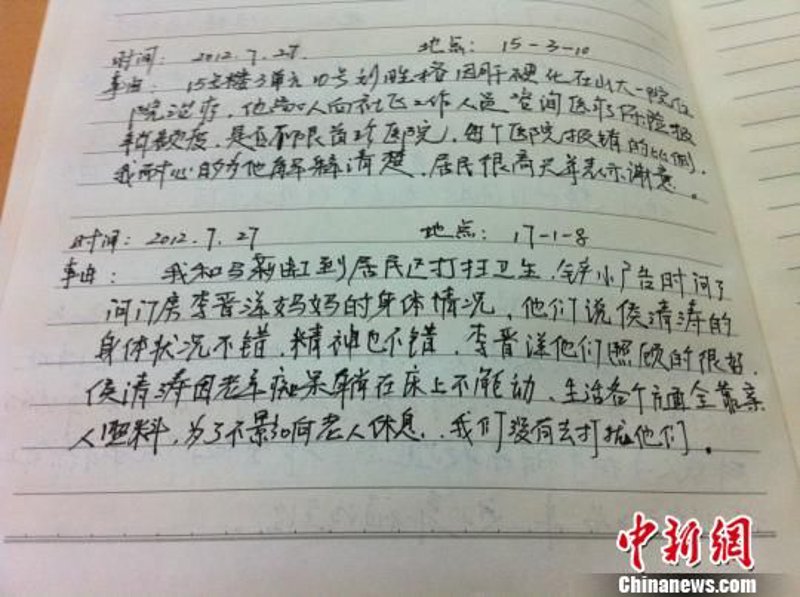 时间： 2012.7.27. 地点： 15-3-10
事由： 15号楼3单元10号刘胜格因肝硬化在山大一院住
院治疗，他家人向社区工作人员咨询医疗保险报
是否有限首诊医院，每个医院报销的比例，
我耐心的为他解释清楚，居民很高兴并表示谢意。
时间： 2012.7.27 地点： 17-1-8
事由： 我和马新虹到居民区打扫卫生，铲小广告时问了
问订房李晋洋妈妈的身体情况，他们说侯清涛的
身体状况不错，精神也不错，李晋洋他们照顾的很好，
侯清涛因老年痴呆躺在床上不能动、生活各个方面全靠亲
人照料，为了不影响老人休息，我们没有去打扰他们。
中新网
Chinanews.com